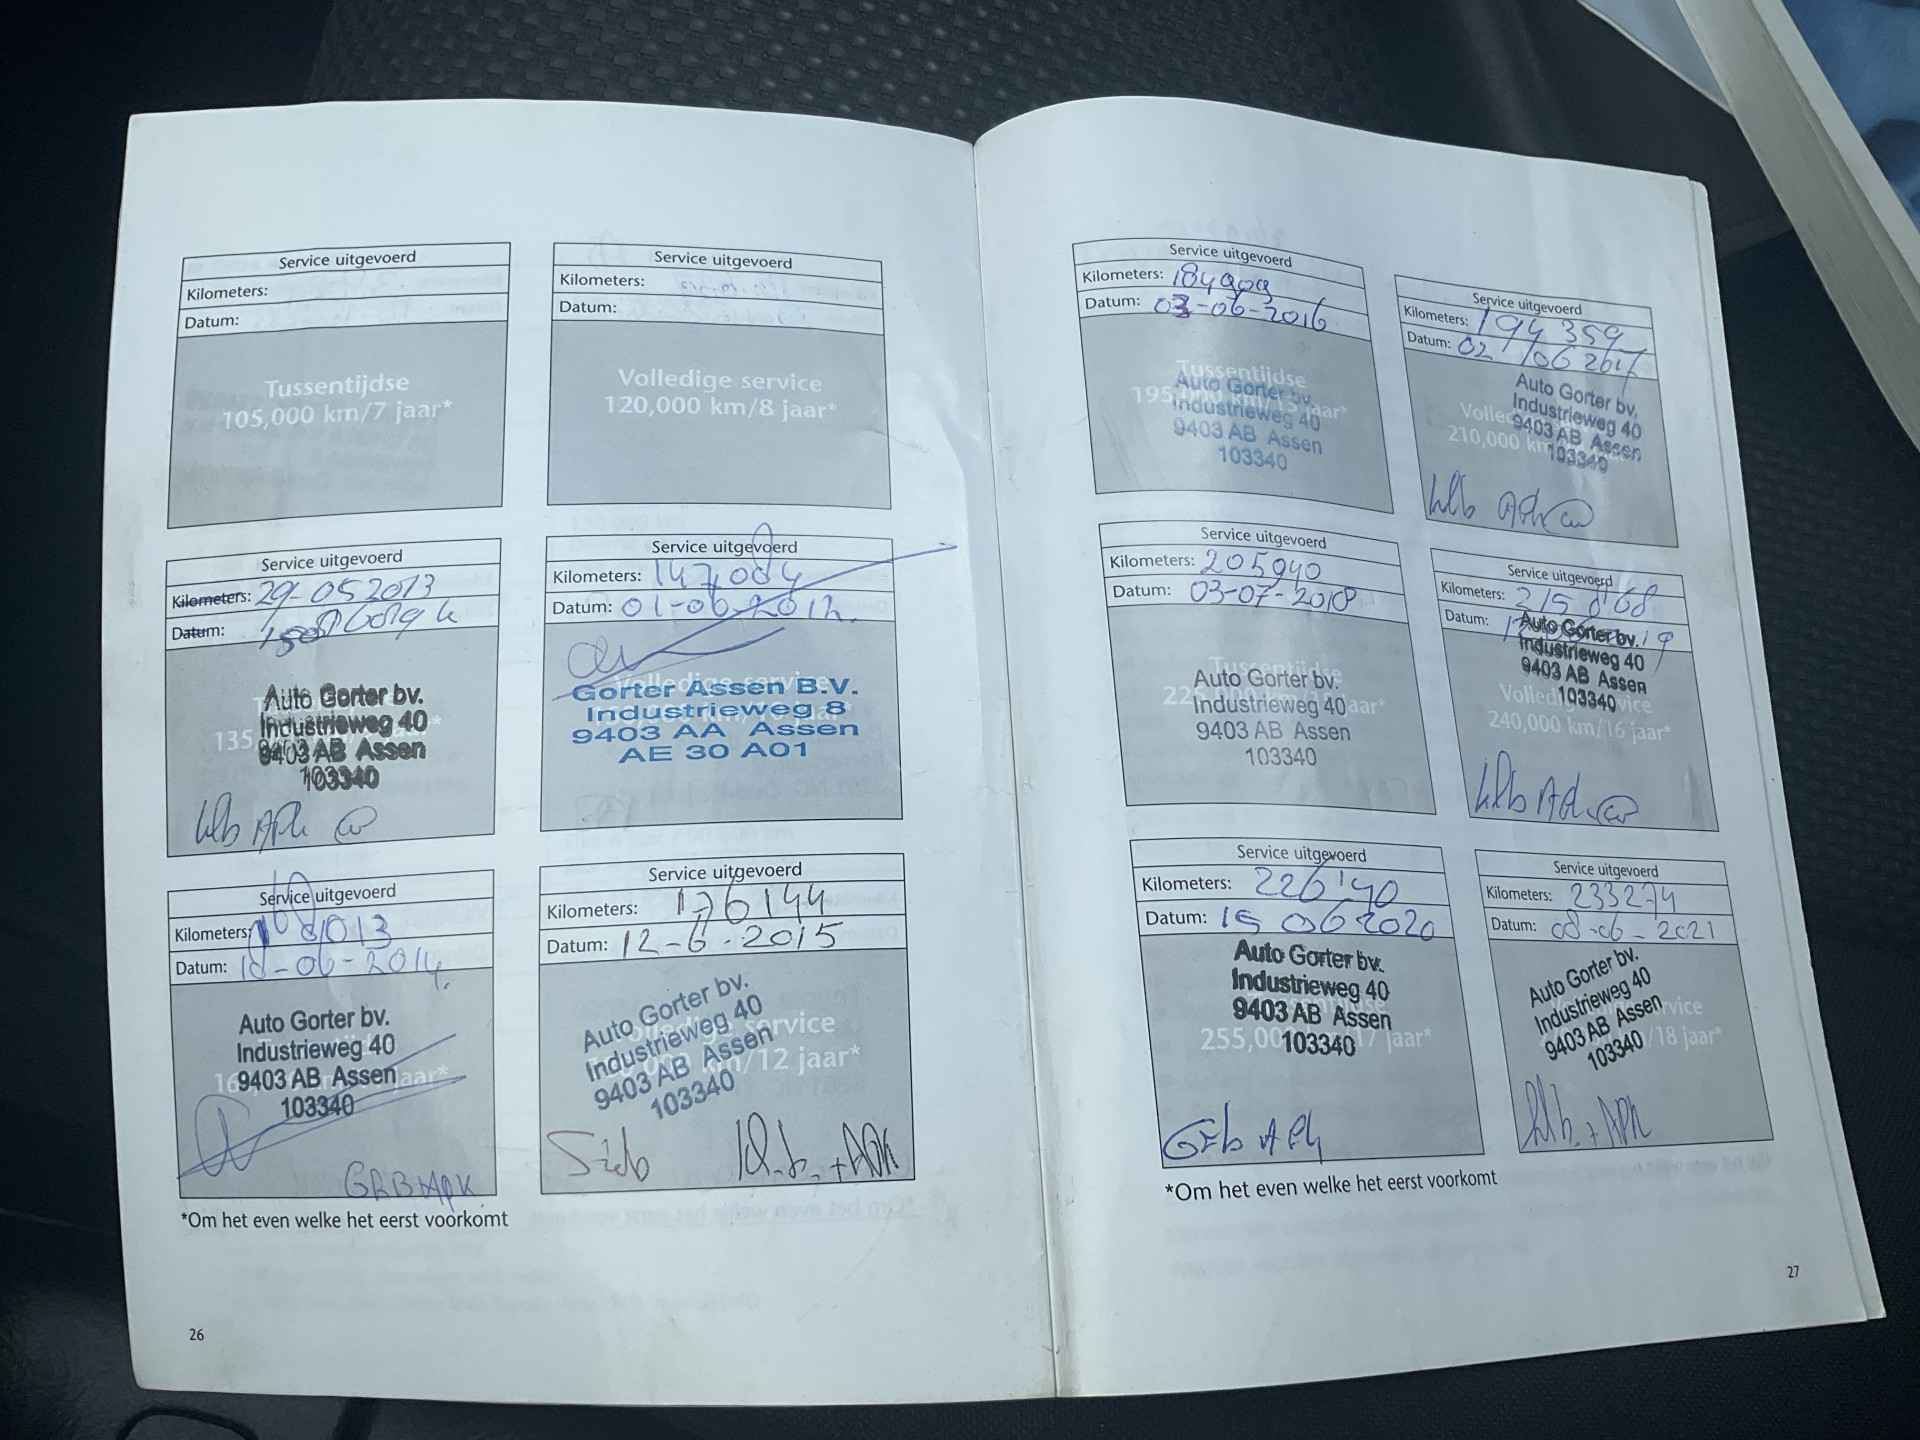 Service uitgevoerd
Kilometers:
Datum:
Tussentijdse
105,000 km/7 jaar*
Service uitgevoerd
Kilometers:
Datum:
Volledige service
120,000 km/8 jaar*
Service uitgevoerd
Kilometers: 29-05 2013
Datum:
135
Auto Gorter bv.
Industrieweg 40
9403 AB Assen
103340
Service uitgevoerd
Kilometers: 147,084
Datum: 01-06-2012.
Volledige service
Gorter Assen B.V.
Industrieweg 8
9403 AA Assen
AE 30 A01
Service uitgevoerd
Kilometers: 168013
Datum: 18-06-2014.
Auto Gorter bv.
Industrieweg 40
9403 AB Assen
103340
GRB+APK
Service uitgevoerd
Kilometers: 176144
Datum: 12-6-2015
Volledige service
km/12 jaar*
Auto Gorter bv.
Industrieweg 40
9403 AB Assen
103340
*Om het even welke het eerst voorkomt
26
Service uitgevoerd
Kilometers: 184909
Datum: 03-06-2016
Tussentijdse
Auto Gorter bv.
Industrieweg 40
9403 AB Assen
103340
Service uitgevoerd
Kilometers: 194 359
Datum: 02/06 2017
210,000
Auto Gorter bv.
Industrieweg 40
9403 AB Assen
103340
Service uitgevoerd
Kilometers: 205940
Datum: 03-07-2018
Tussentijdse
Auto Gorter bv.
Industrieweg 40
9403 AB Assen
103340
Service uitgevoerd
Kilometers: 215 868
Datum:
Auto Gorter bv.
Industrieweg 40
9403 AB Assen
103340
240,000 km/16 jaar*
Service uitgevoerd
Kilometers: 226140
Datum: 15 06 2020
Auto Gorter bv.
Industrieweg 40
9403 AB Assen
103340
Service uitgevoerd
Kilometers: 233274
Datum: 08-06-2021
Auto Gorter bv.
Industrieweg 40
9403 AB Assen
103340
/18 jaar*
*Om het even welke het eerst voorkomt
27